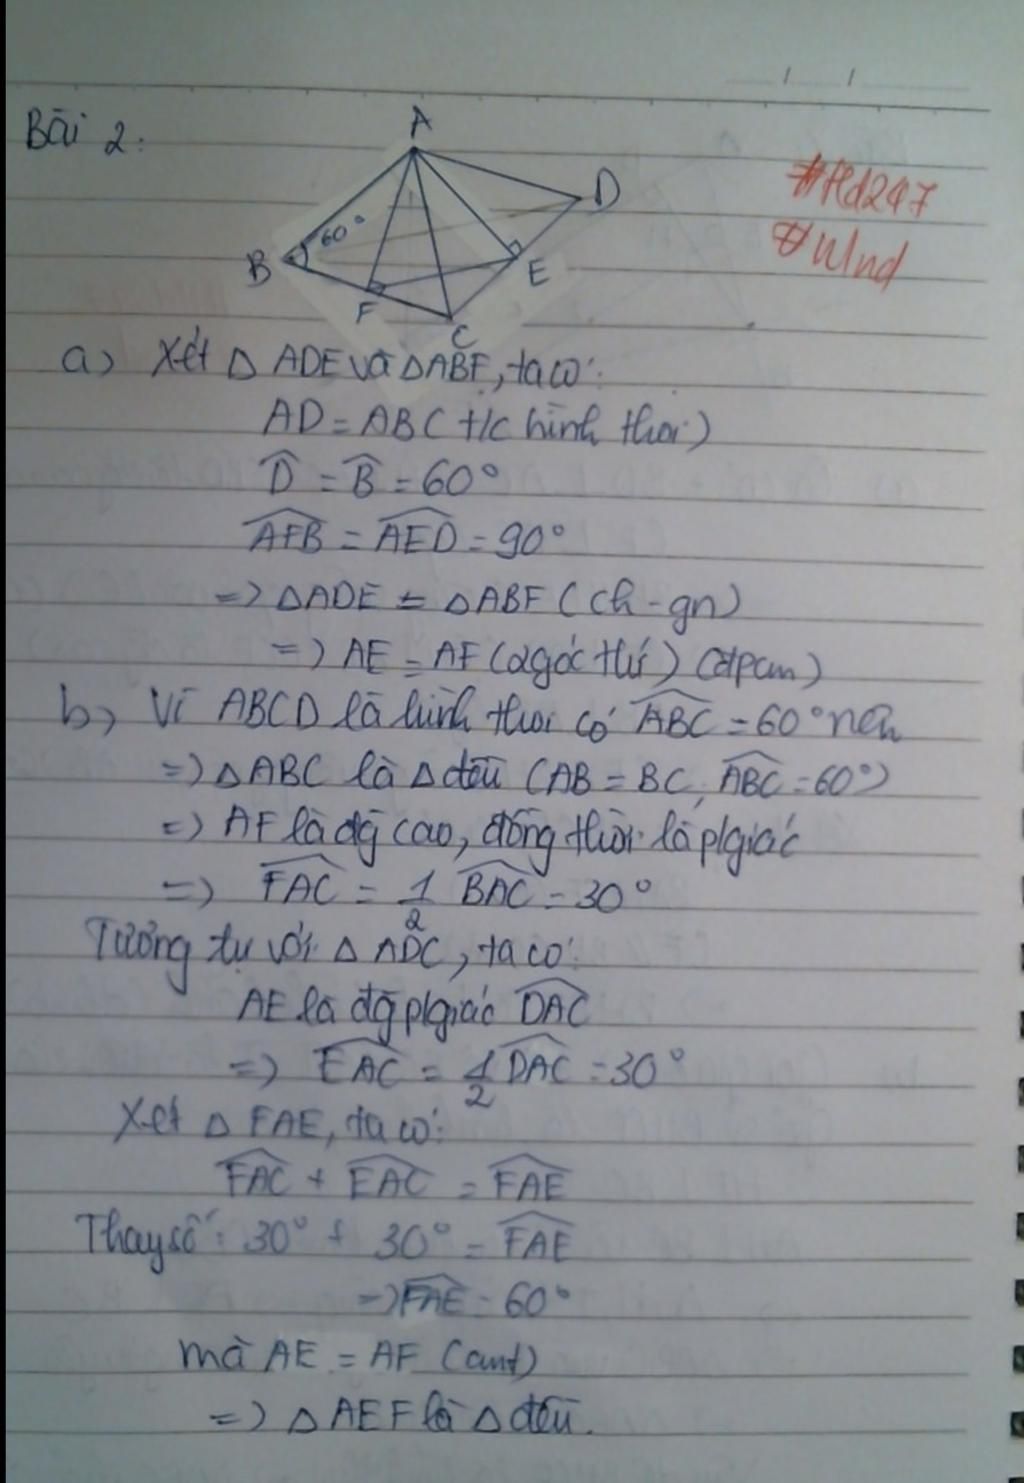 Bài 2:
A
D
60°
B
E
F
C
#Hd247
#Wnd
a) Xét △ ADE và △ABF, ta có:
AD = AB ( t/c hình thoi)
D̂ = B̂ = 60°
AFB = AED = 90°
=> △ADE = △ABF ( ch - gn)
=> AE = AF (2 góc t/ứ) (đpcm)
b, Vì ABCD là hình thoi có ABC = 60° nên
=> △ABC là △ đều (AB = BC, ABC = 60°)
=> AF là đg cao, đồng thời là p/giác
=> FAC = 1/2 BAC = 30°
Tương tự với △ ADC, ta có:
AE là đg p/giác DAC
=> EAC = 1/2 DAC = 30°
Xét △ FAE, ta có:
FAC + EAC = FAE
Thay số: 30° + 30° = FAE
=> FAE = 60°
mà AE = AF (cmt)
=> △ AEF là △ đều.